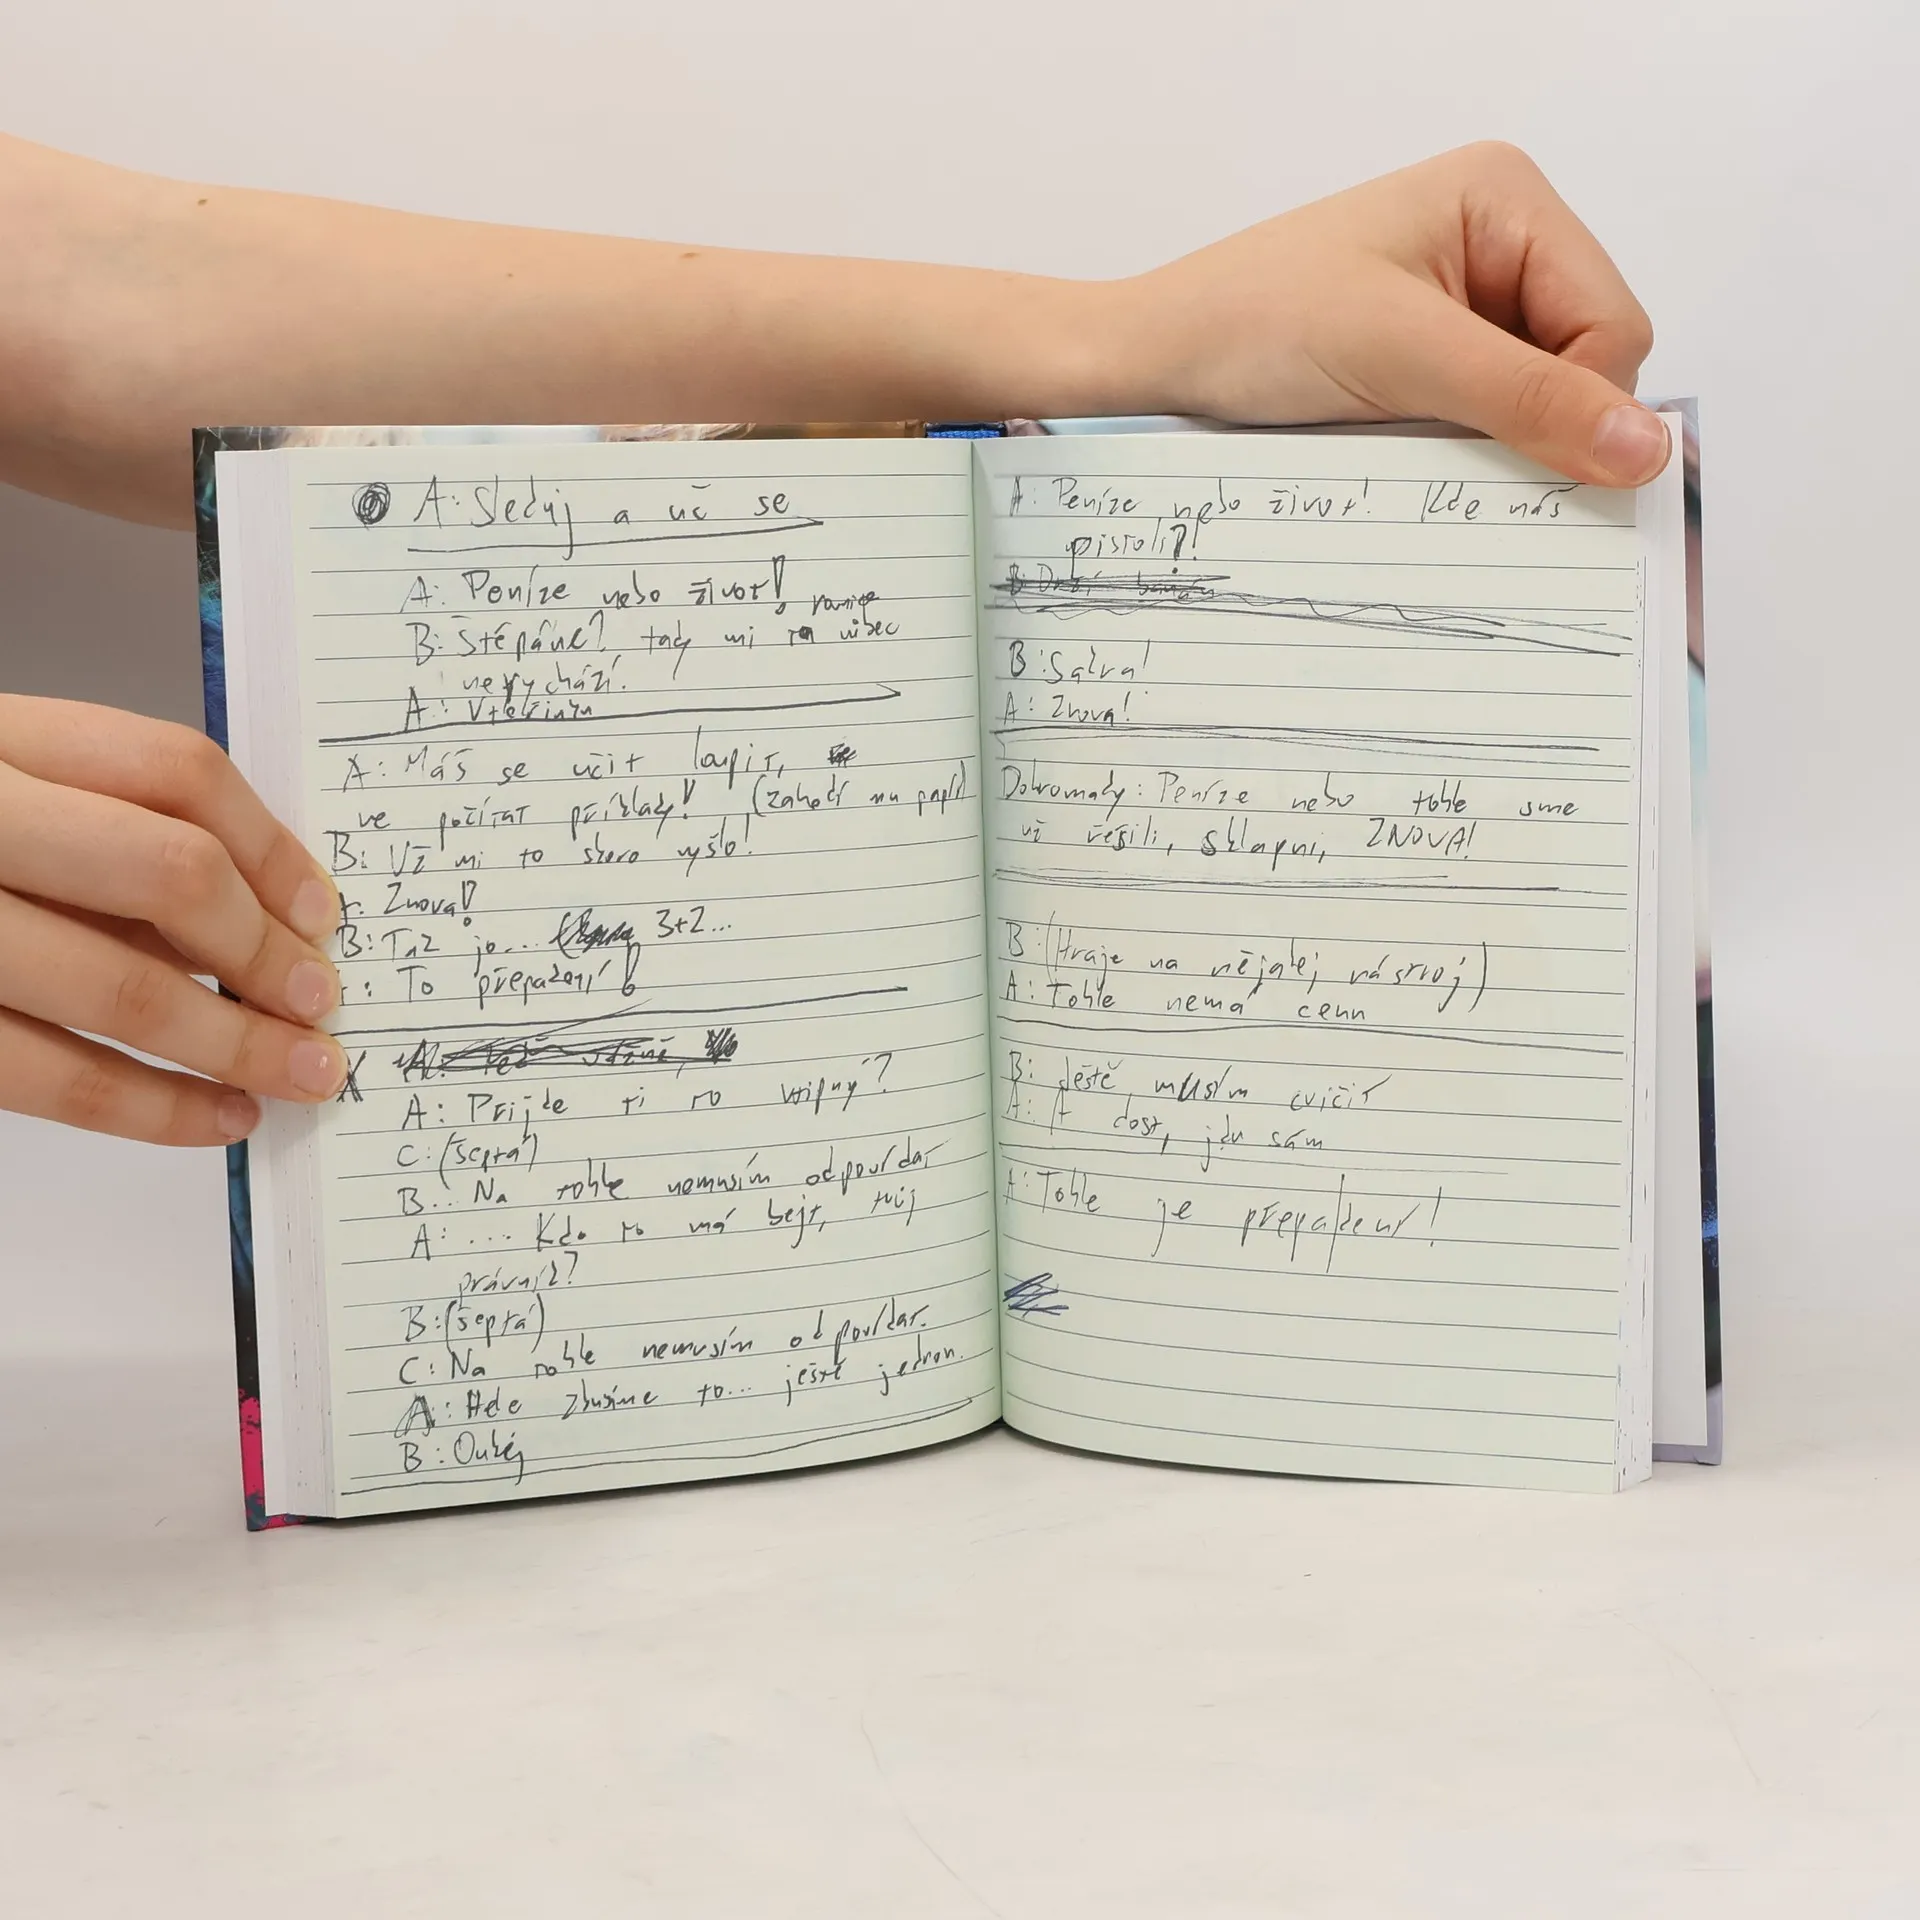 A: Sleduj a uč se
A: Peníze nebo život!
rovnice
B: Štěpáne?, tady mi ta vůbec
nevychází.
A: Vteřinku
A: Máš se učit loupit,
ne počítat příklady! (zahodí mu papír)
B: Už mi to skoro vyšlo!
A: Znova!
B: Tak jo... 3+2...
A: To přepadení!
X
A: Přijde ti to vtipný?
C: (šeptá)
B... Na tohle nemusím odpovídat
A: ... Kdo to má bejt, tvůj
právník?
B: (šeptá)
C: Na tohle nemusím odpovídat.
A: Hele zkusíme to... ještě jednou.
B: Oukéj
A: Peníze nebo život! Kde máš
pistoli?!
B: Sakra!
A: Znova!
Dohromady: Peníze nebo tohle sme
už řešili, sklapni, ZNOVA!
B: (Hraje na nějakej nástroj)
A: Tohle nemá cenu
B: Ještě musím cvičit
A: A dost, jdu sám
A: Tohle je přepadení!